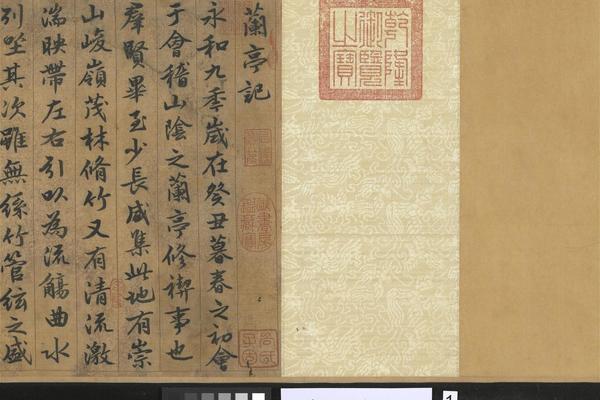 乾隆
御覽
之寶
蘭亭記
永和九年歲在癸丑暮春之初會
于會稽山陰之蘭亭修禊事也
羣賢畢至少長咸集此地有崇
山峻嶺茂林脩竹又有清流激
湍映帶左右引以為流觴曲水
列坐其次雖無絲竹管絃之盛
1